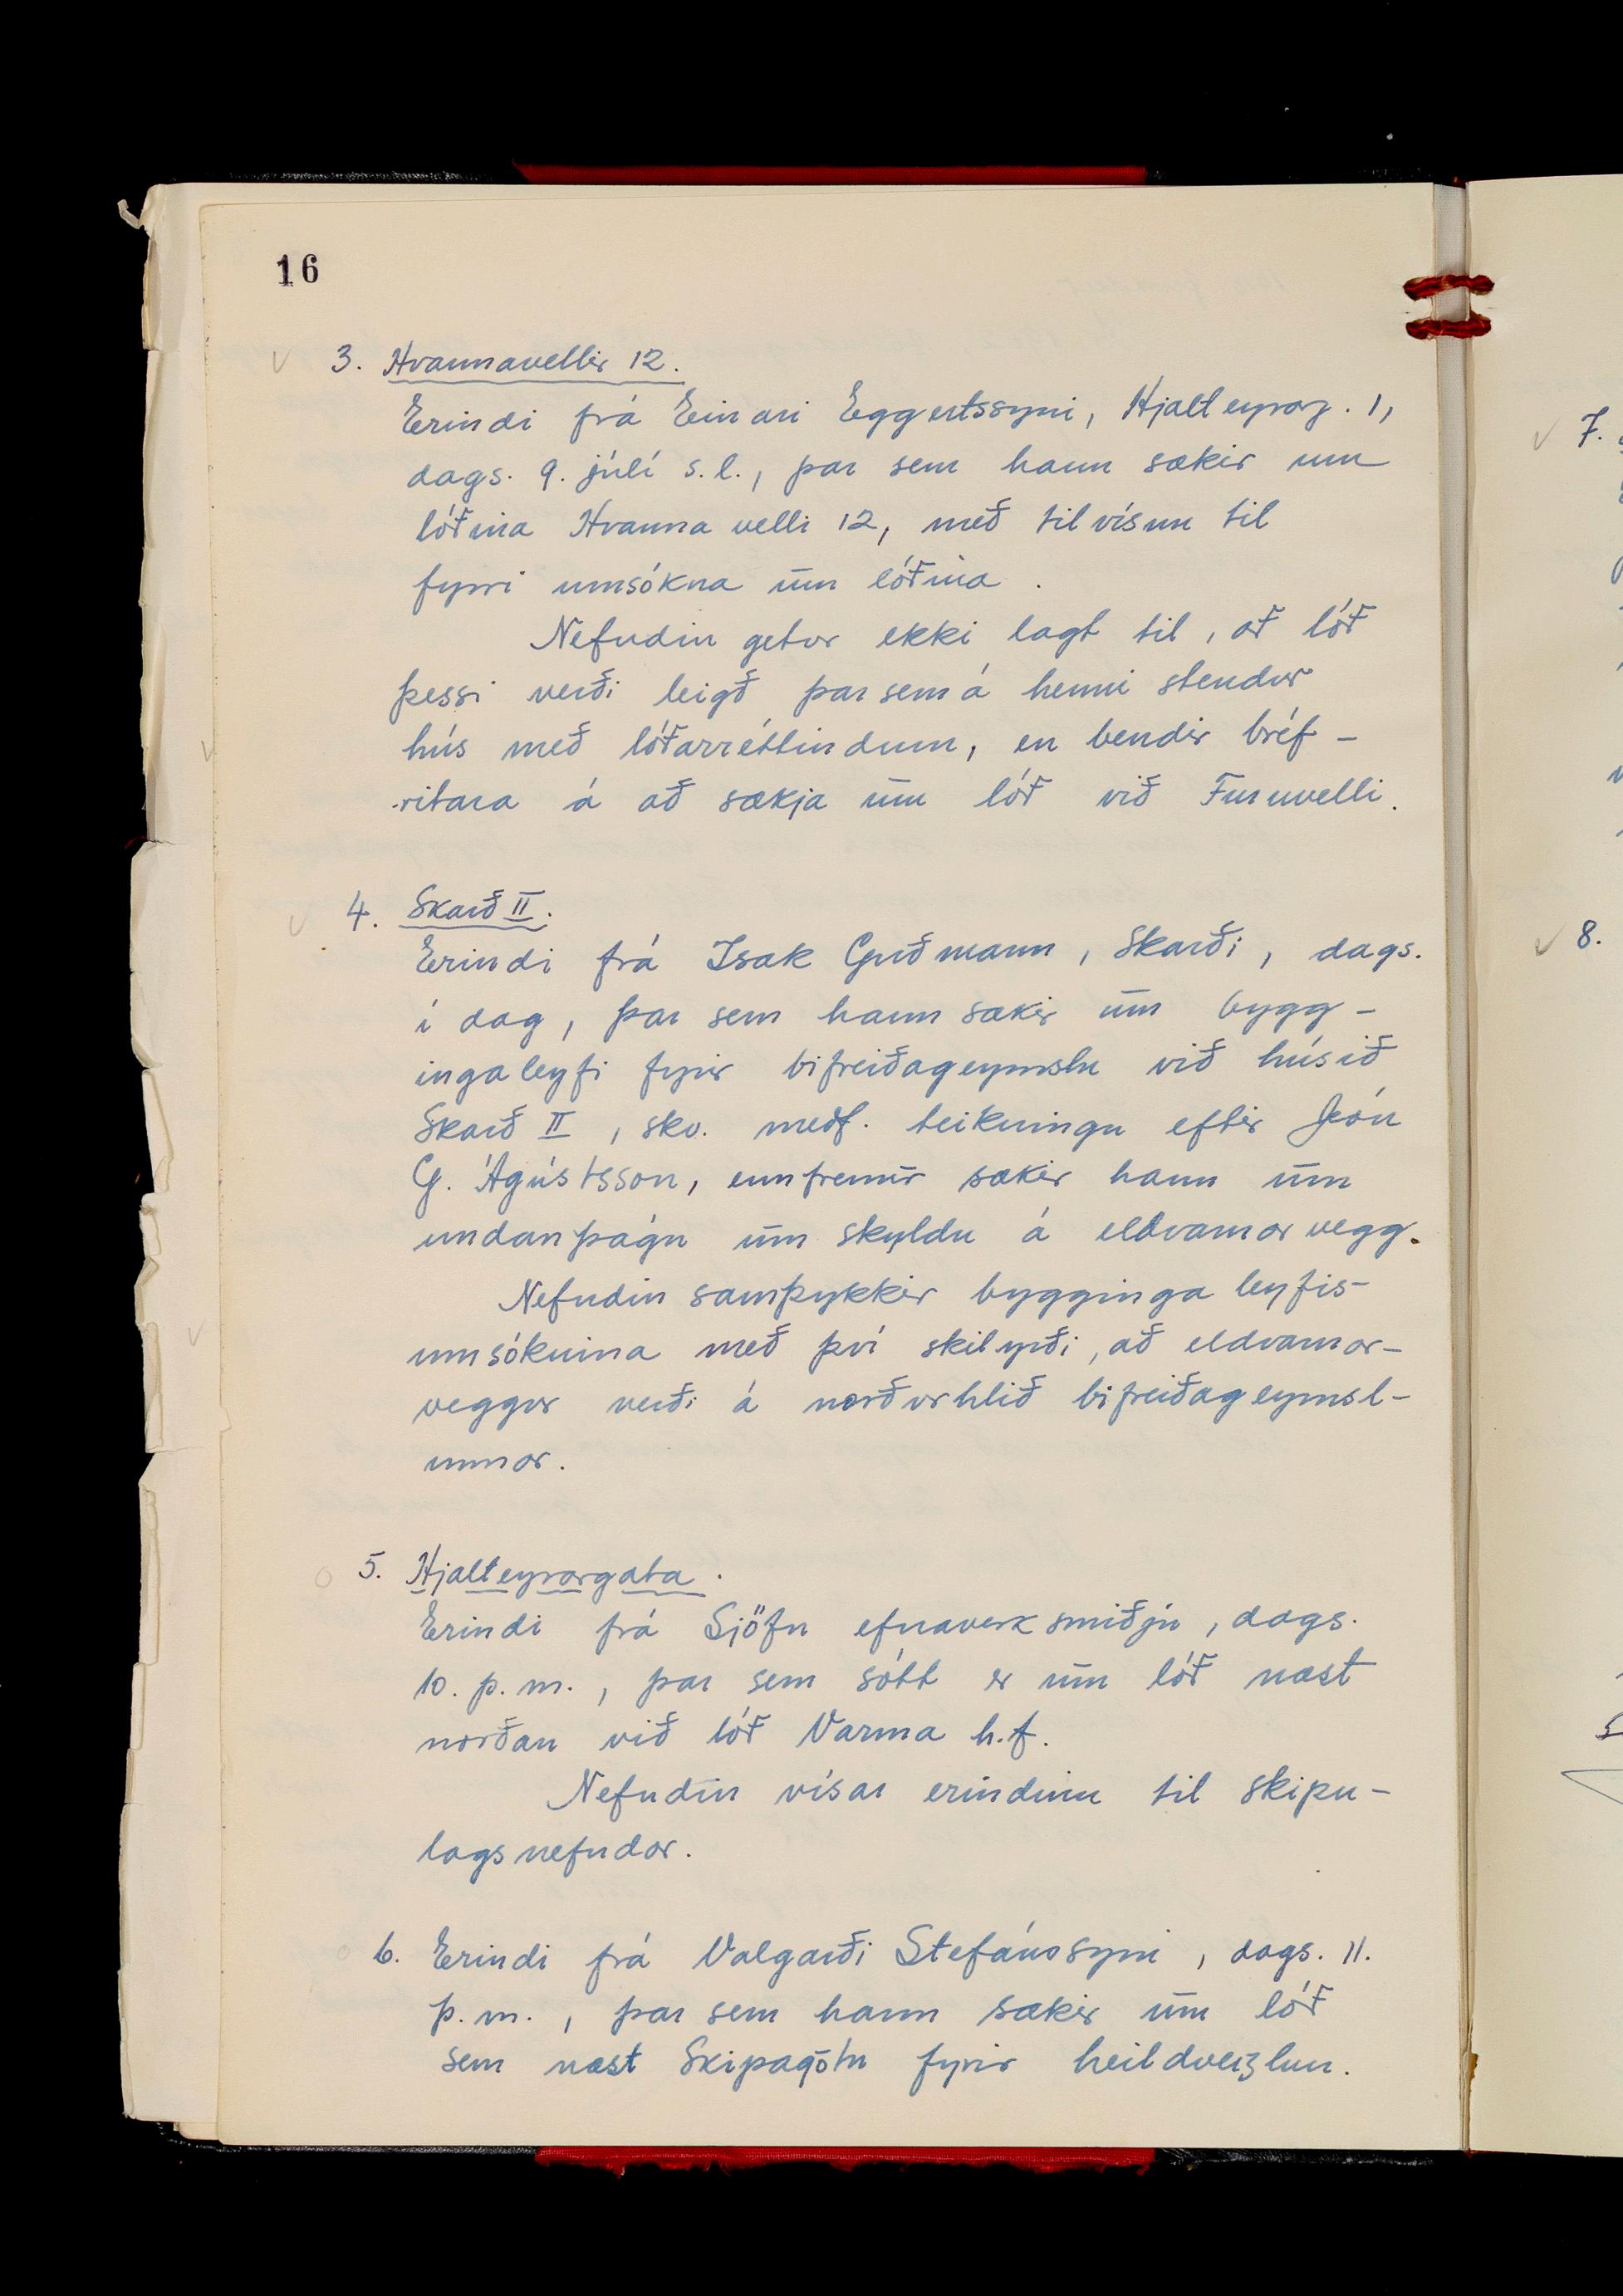 16
3. Hvannavellir 12.
Erindi frá Einari Eggertssyni, Hjalteyrarg. 1,
dags. 9. júlí s.l., þar sem hann sækir um
lóðina Hvannavelli 12, með tilvísun til
fyrri umsókna um lóðina.
Nefndin getur ekki lagt til, að lóð
þessi verði leigð þar sem á henni stendur
hús með lóðarréttindum, en bendir bréf-
ritara á að sækja um lóð við Furuvelli.
4. Skarð II.
Erindi frá Ísak Guðmann, Skarði, dags.
í dag, þar sem hann sækir um bygg-
ingaleyfi fyrir bifreiðageymslu við húsið
Skarð II, skv. meðf. teikningu eftir Jón
G. Ágústsson, ennfremur sækir hann um
undanþágu um skyldu á eldvarnarvegg.
Nefndin samþykkir byggingaleyfis-
umsóknina með því skilyrði, að eldvarnar-
veggur verði á norðurhlið bifreiðageymsl-
unnar.
5. Hjalteyrargata.
Erindi frá Sjöfn efnaverksmiðju, dags.
10. þ.m., þar sem sótt er um lóð næst
norðan við lóð Varma h.f.
Nefndin vísar erindinu til skipu-
lagsnefndar.
6. Erindi frá Valgarði Stefánssyni, dags. 11.
þ.m., þar sem hann sækir um lóð
sem næst Skipagötu fyrir heildverzlun.
7.
8.